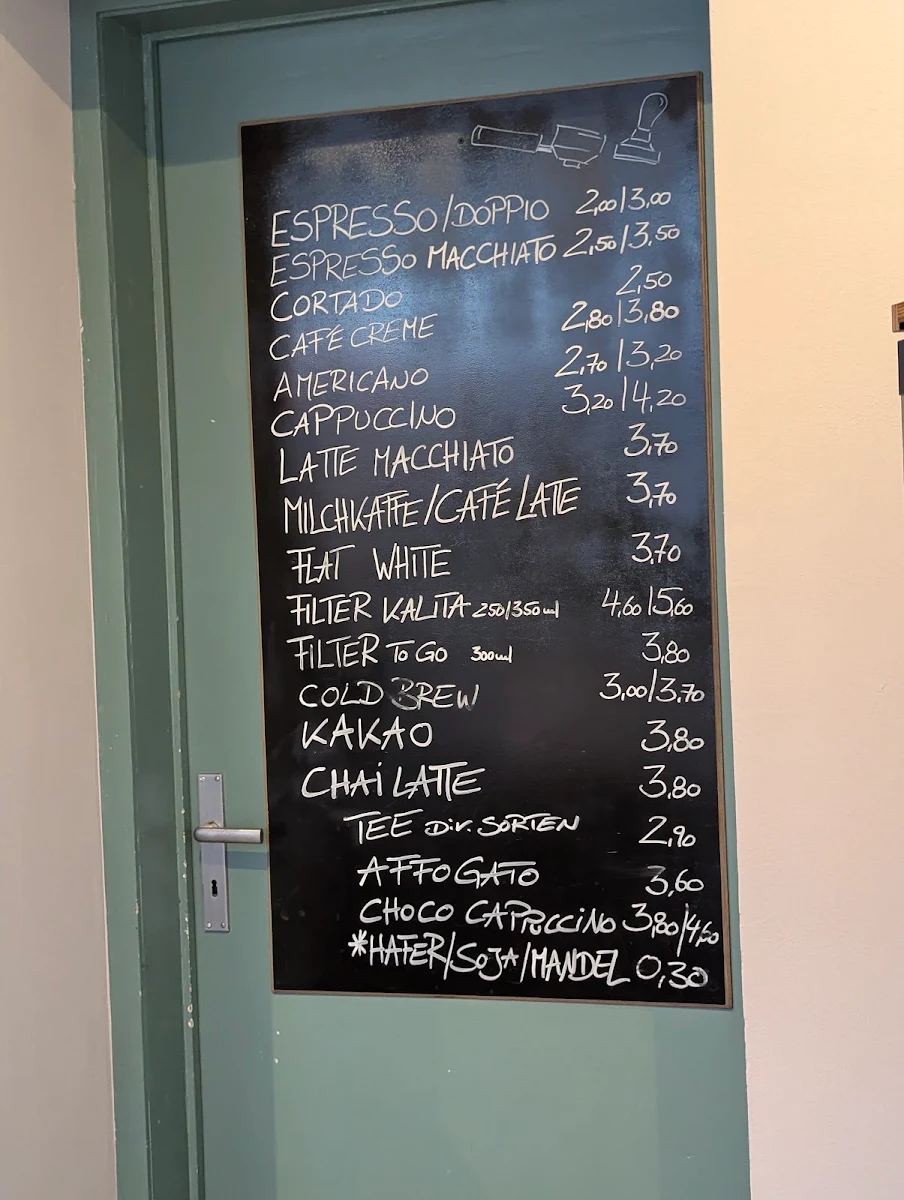 ESPRESSO/DOPPIO 2,00/3,00
ESPRESSO MACCHIATO 2,50/3,50
CORTADO 2,50
CAFÉ CREME 2,80/3,80
AMERICANO 2,70/3,20
CAPPUCCINO 3,20/4,20
LATTE MACCHIATO 3,70
MILCHKAFFE/CAFÉ LATTE 3,70
FLAT WHITE 3,70
FILTER KALITA 250/350ml 4,60/5,60
FILTER TO GO 300ml 3,80
COLD BREW 3,00/3,70
KAKAO 3,80
CHAI LATTE 3,80
TEE DIV. SORTEN 2,90
AFFOGATO 3,60
CHOCO CAPPUCCINO 3,80/4,60
*HAFER/SOJA/MANDEL 0,30